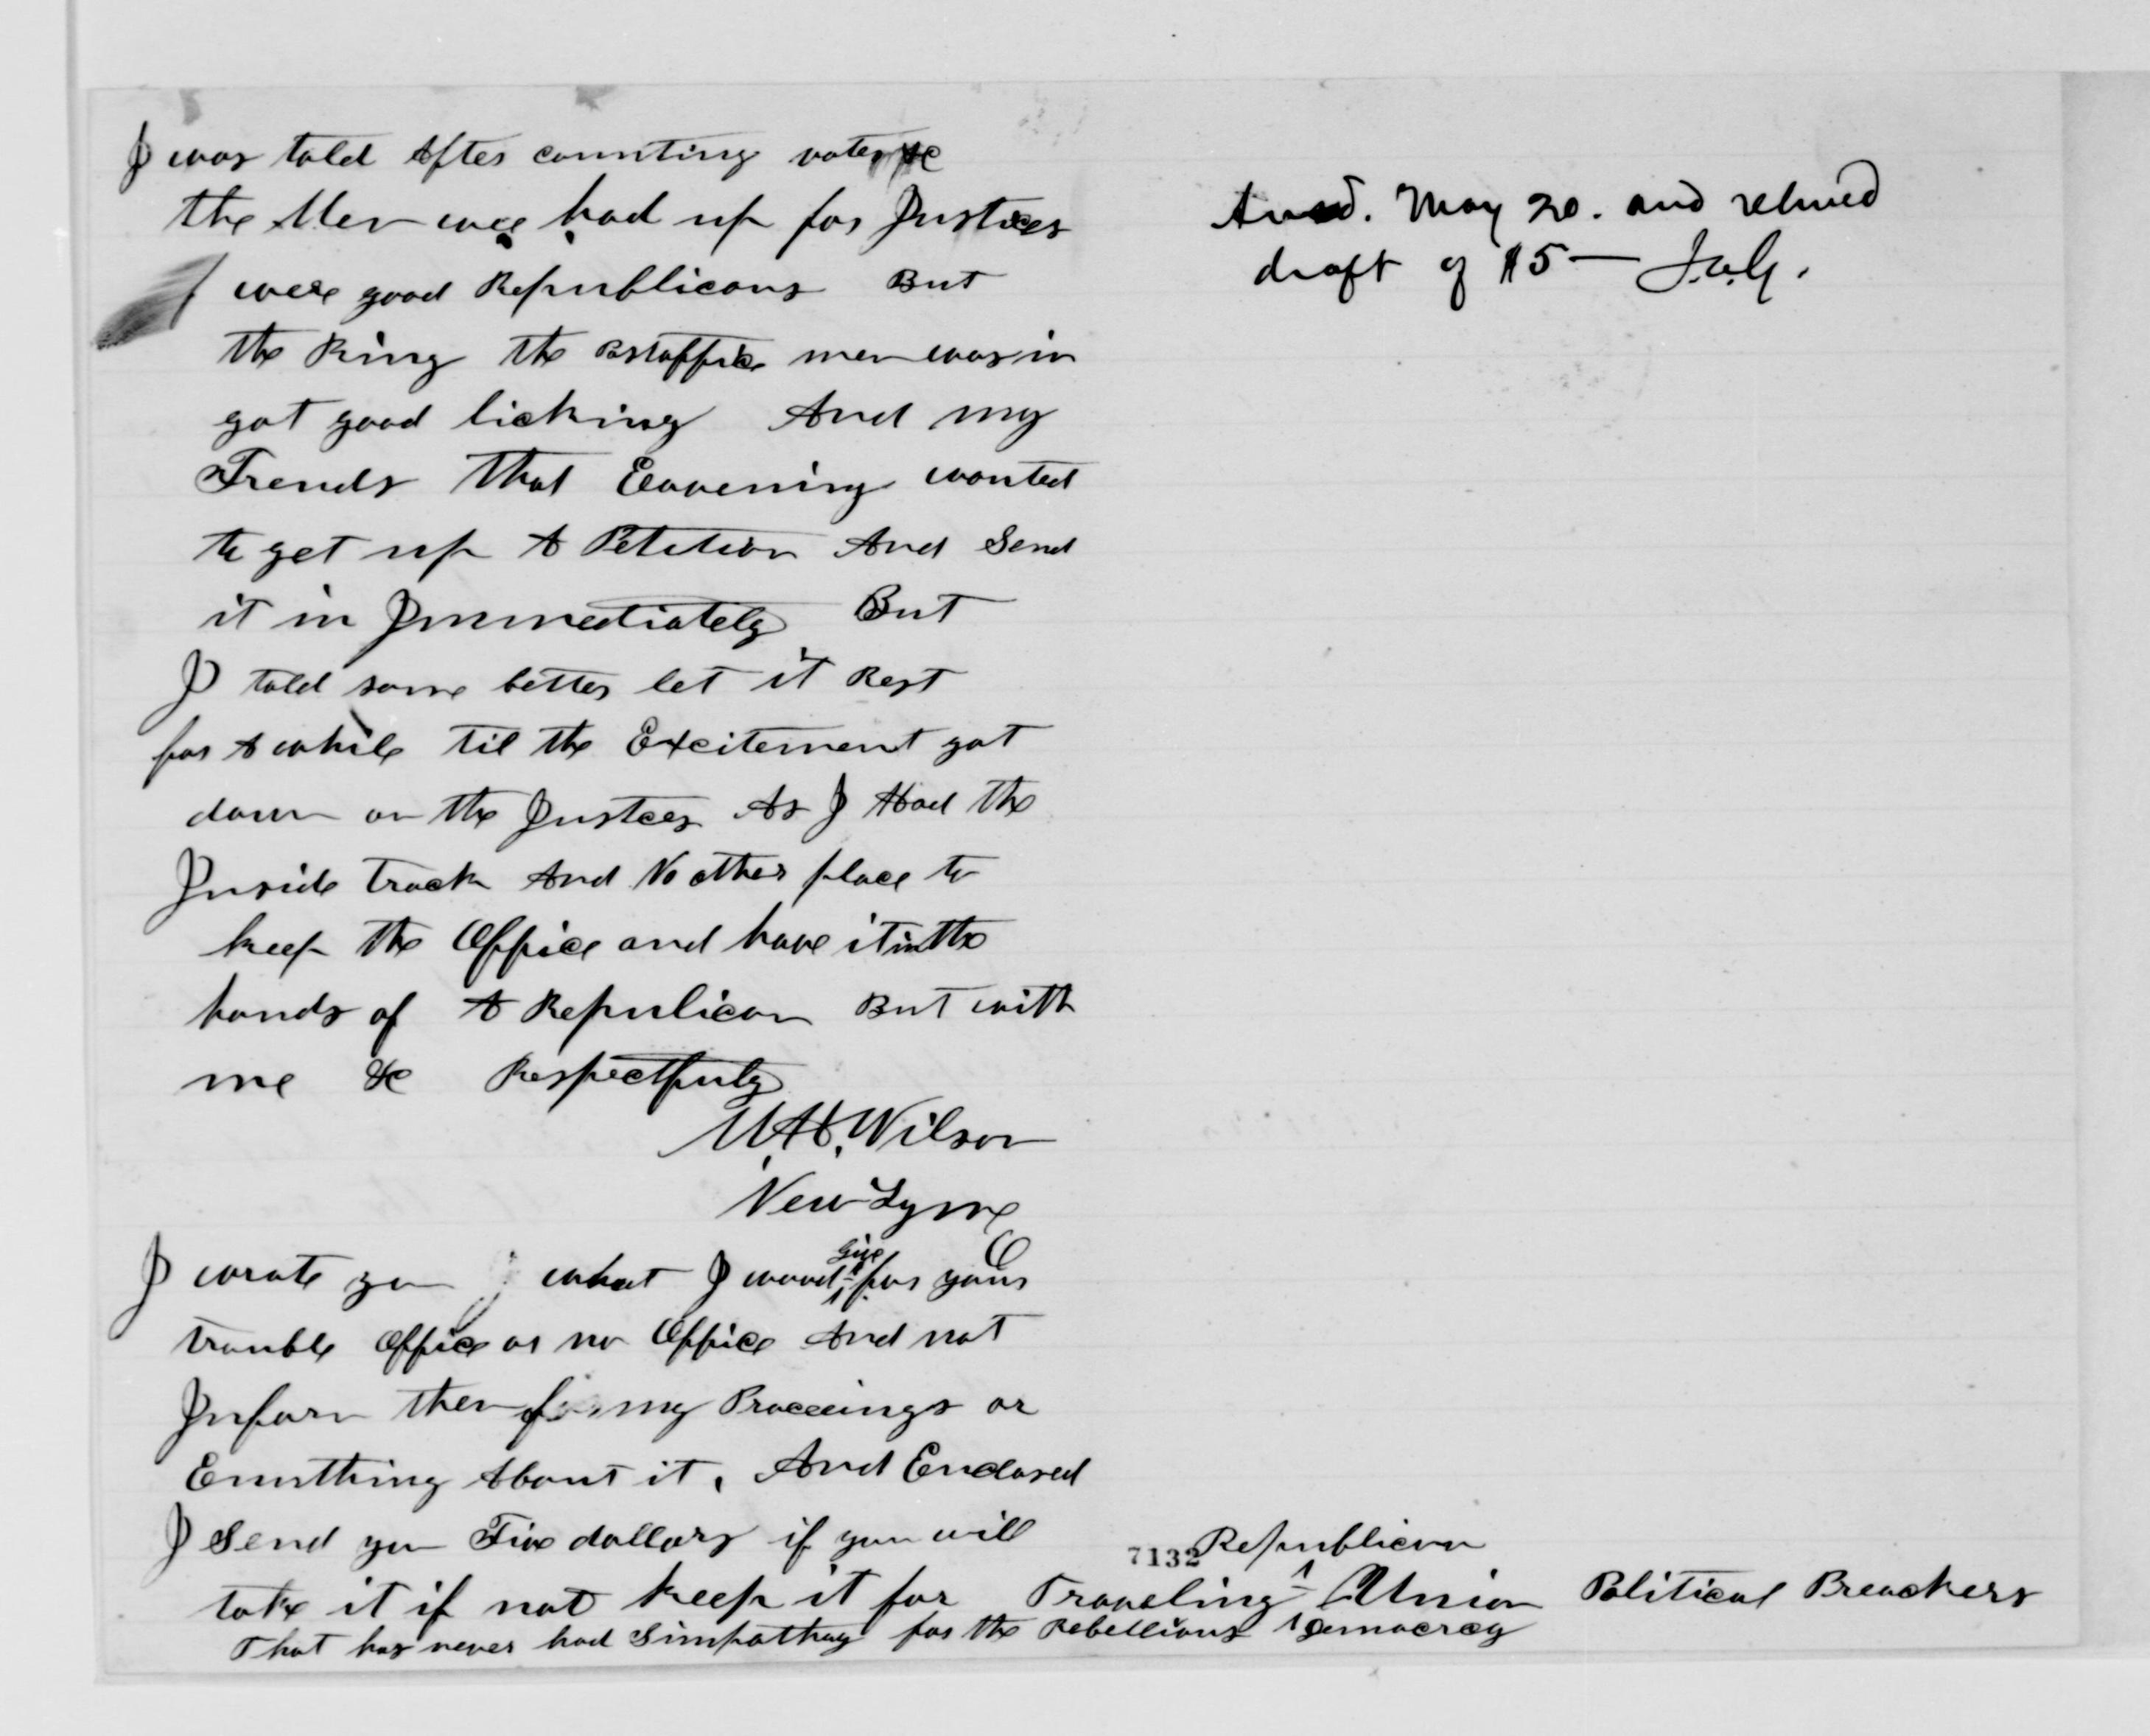 I was told After counting votes &c
the Men wee had up for Justices
were good Republicans But
the Ring the Postoffice men was in
got good licking And my
Frends that Eavening wanted
to get up A Petition And Send
it in Immediately But
I told some better let it Rest
for A while til the Excitement got
down on the Justces As I Had the
Inside track And No other place to
keep the Office and have it in the
hands of A Repulican But with
me &c Respectfuly
Wilson
New Lyme
O
I wrote you what I wood Give for your
trouble Office or no Office And not
Inform them my Proceeings or
Ennthing About it, And Enclosed
I Send you Five dollars if you will
take it if not keep it for Traveling Republican Union Political Preachers
That has never had Simpathay for the Rebellious Democracy
Answd. May 20. and retured
draft of $5 — J.A.G.
7132